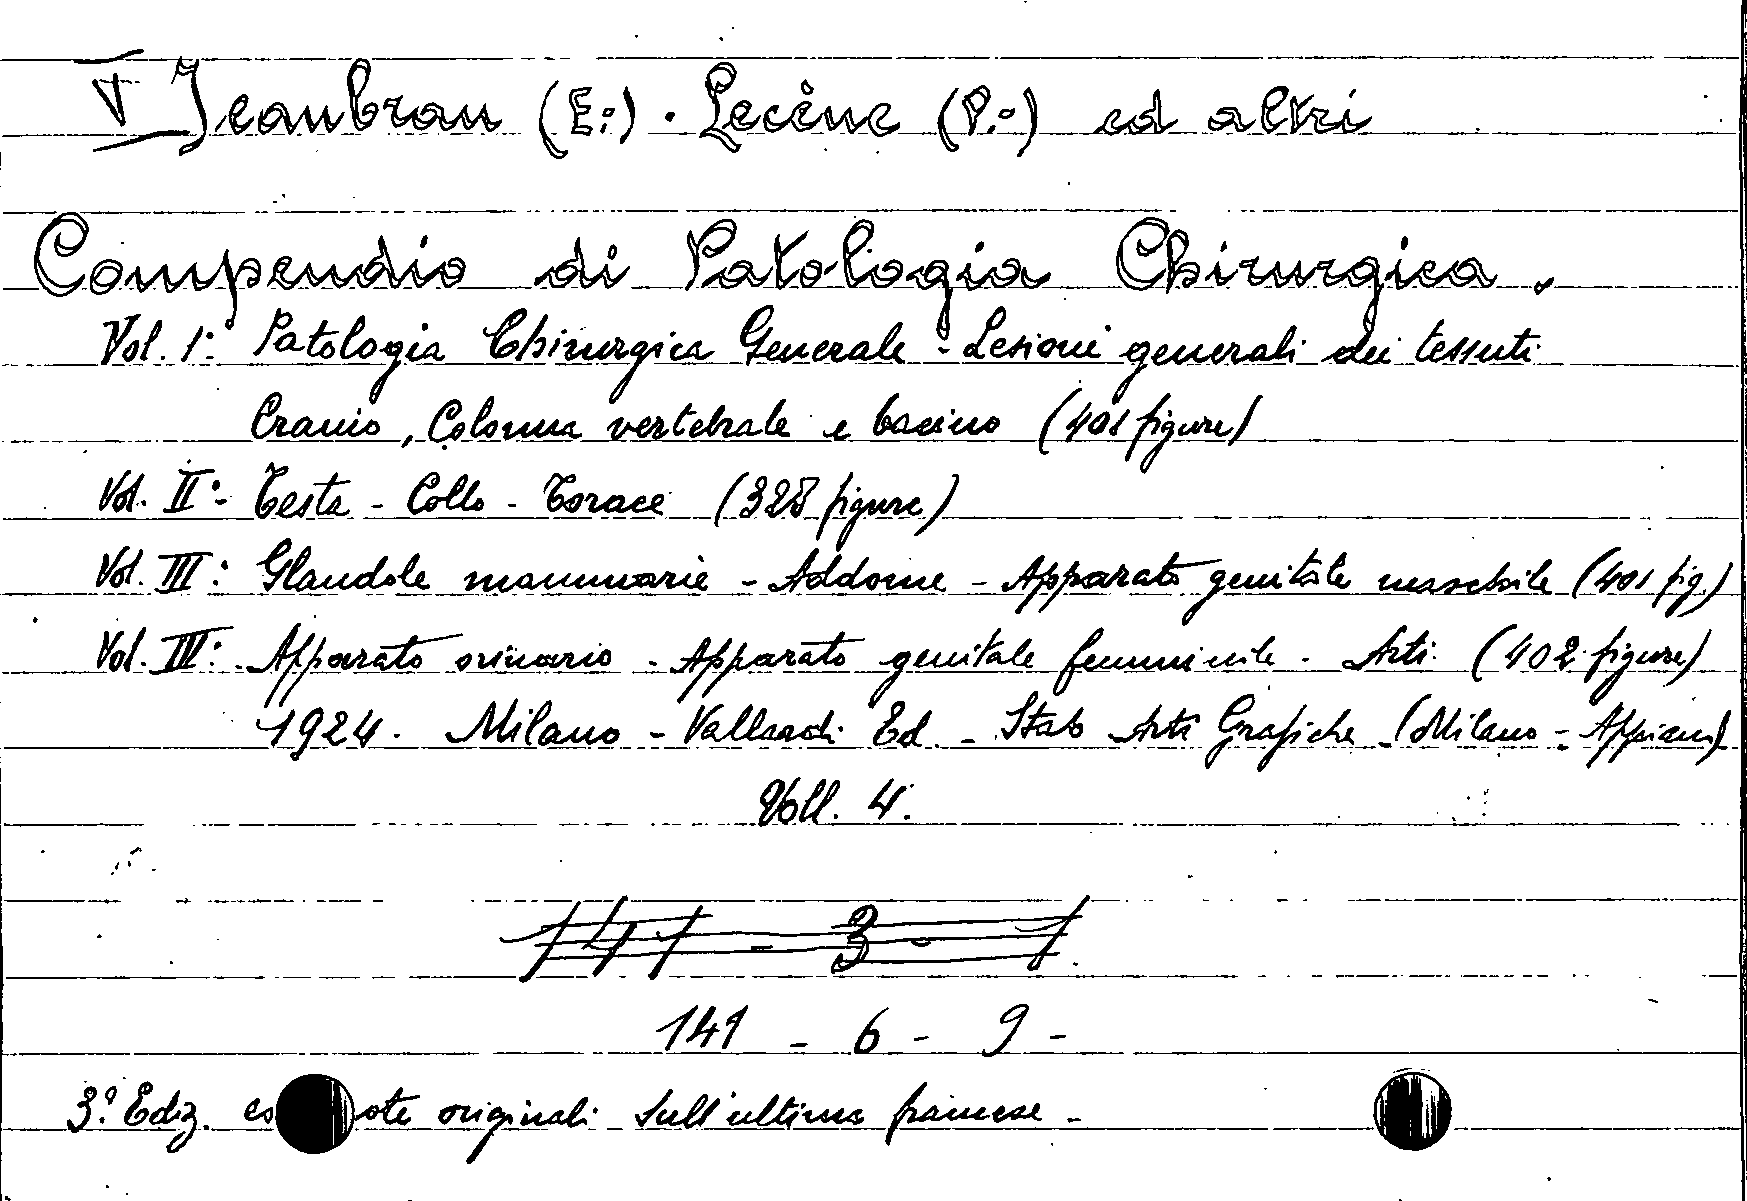 V Jeanbran (E:) . Lecène (P.:) ed altri
Compendio di Patologia Chirurgica.
Vol. I: Patologia Chirurgica Generale - Lesioni generali dei tessuti
Cranio, Colonna vertebrale e bacino (401 figure)
Vol. II: - Testa - Collo - Torace (328 figure)
Vol. III: Glandole mammarie - Addome - Apparato genitale maschile (401 fig.)
Vol. IV: Apparato orinario - Apparato genitale femminile - Arti (402 figure)
1924. Milano - Vallardi Ed. - Stab Arti Grafiche (Milano - Appiani)
Voll. 4.
141 - 3 - 1
141 - 6 - 9 -
3ª Ediz. originali sull'ultima francese -